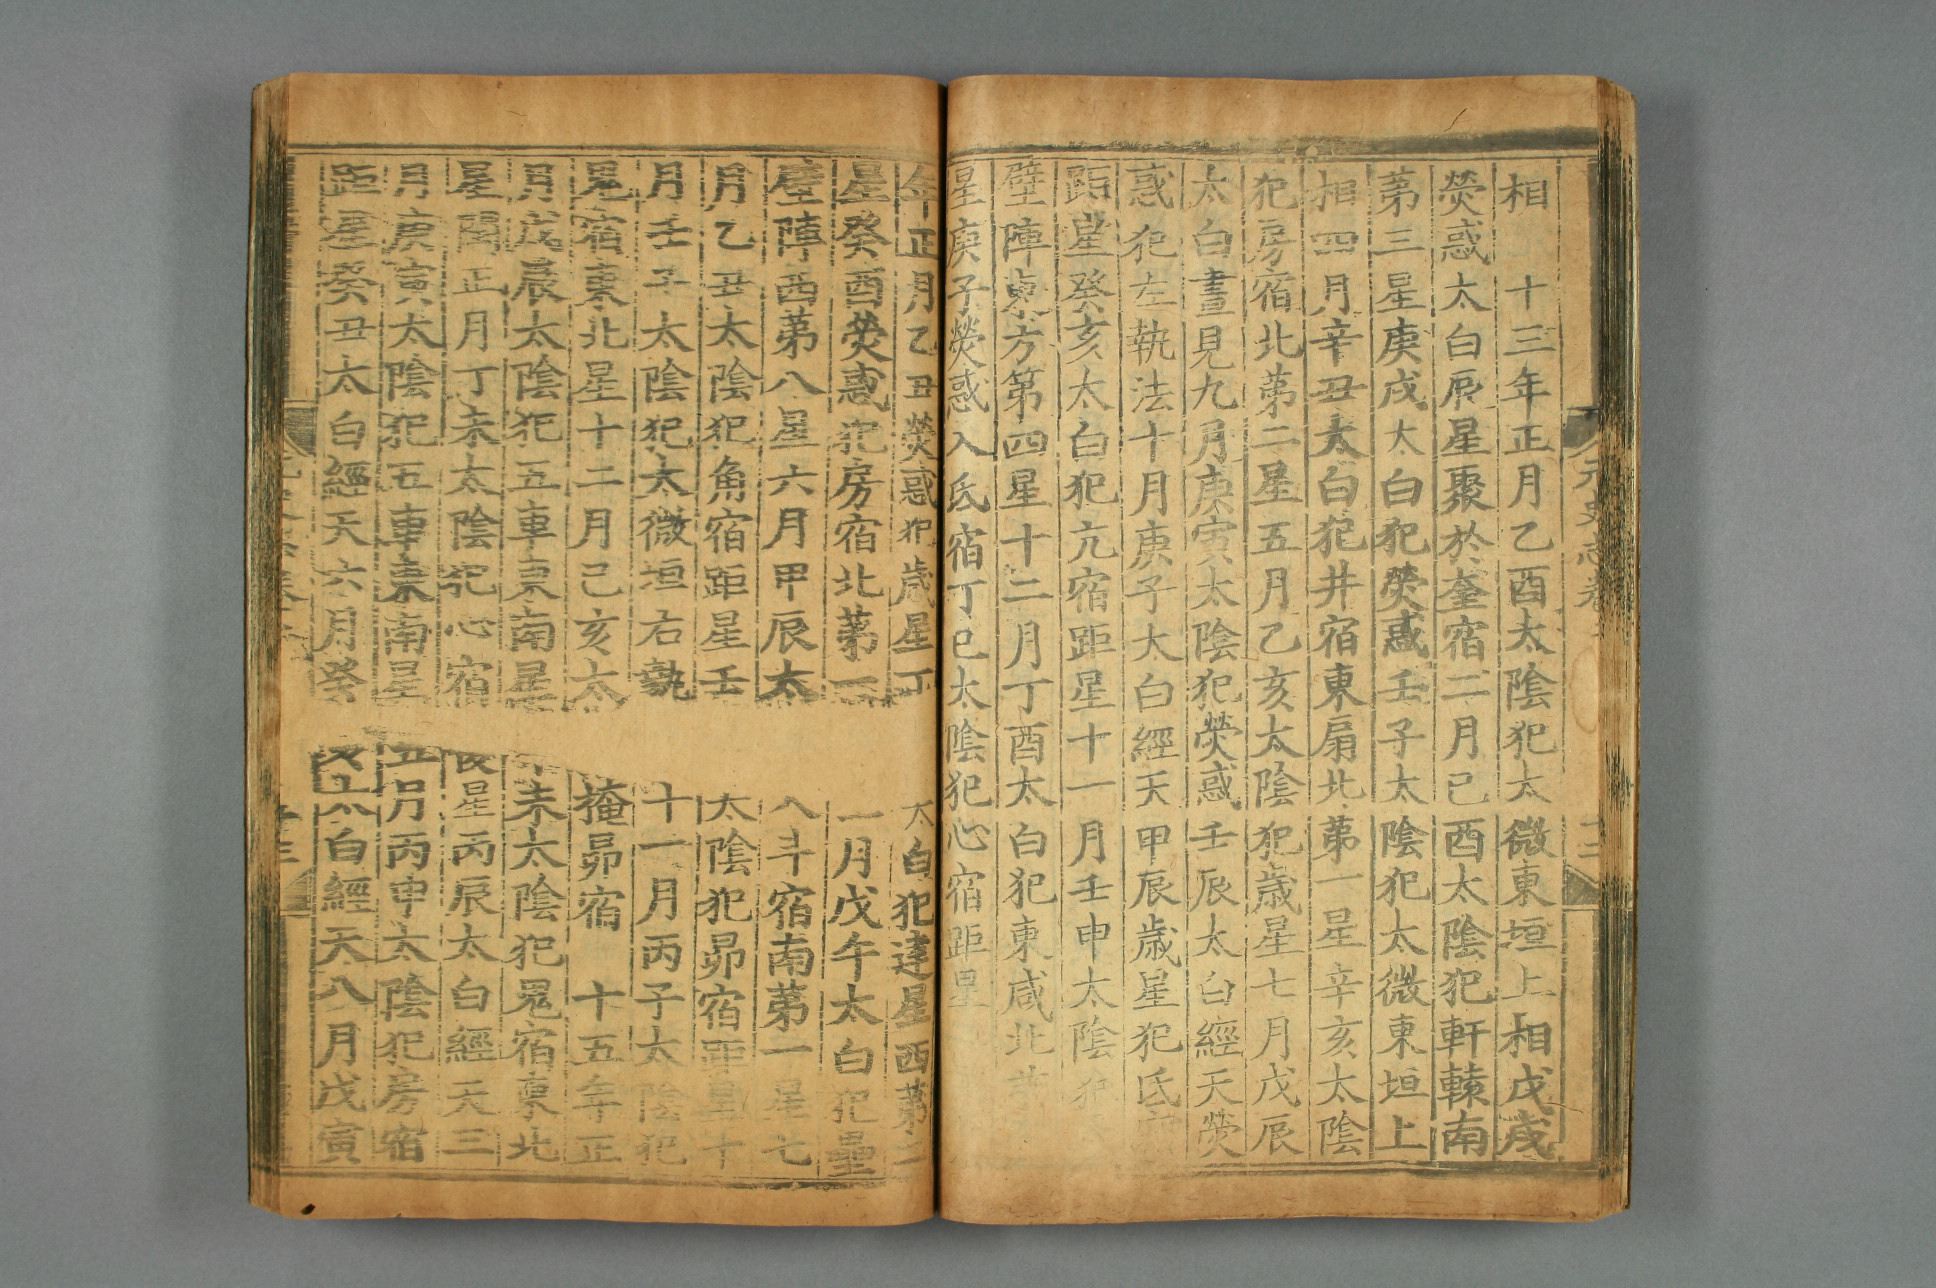 相　十三年正月乙酉太陰犯太微東垣上相戊戌
熒惑太白辰星聚於奎宿二月己酉太陰犯軒轅南
第三星庚戌太白犯熒惑壬子太陰犯太微東垣上
相四月辛丑太白犯井宿東扇北第一星辛亥太陰
犯房宿北第二星五月乙亥太陰犯歲星七月戊辰
太白晝見九月庚寅太陰犯熒惑壬辰太白經天熒
惑犯左執法十月庚子太白經天甲辰歲星犯氐宿
距星癸亥太白犯亢宿距星十一月壬申太陰犯
壁陣東方第四星十二月丁酉太白犯東咸北第
星庚子熒惑入氐宿丁巳太陰犯心宿距星
年正月乙丑熒惑犯歲星丁 太白犯建星西第二
星癸酉熒惑犯房宿北第一 一月戊午太白犯壘
壁陣西第八星六月甲辰太 八斗宿南第一星七
月乙丑太陰犯角宿距星壬 太陰犯昴宿距星十
月壬子太陰犯太微垣右執 十一月丙子太陰犯
鬼宿東北星十二月己亥太 掩昴宿　十五年正
月戊辰太陰犯五車東南星 未太陰犯鬼宿東北
星閏正月丁未太陰犯心宿 後星丙辰太白經天三
月庚寅太陰犯五車東南星 五月丙申太陰犯房宿
距星癸丑太白經天六月癸 太白經天八月戊寅
元史志卷
十三